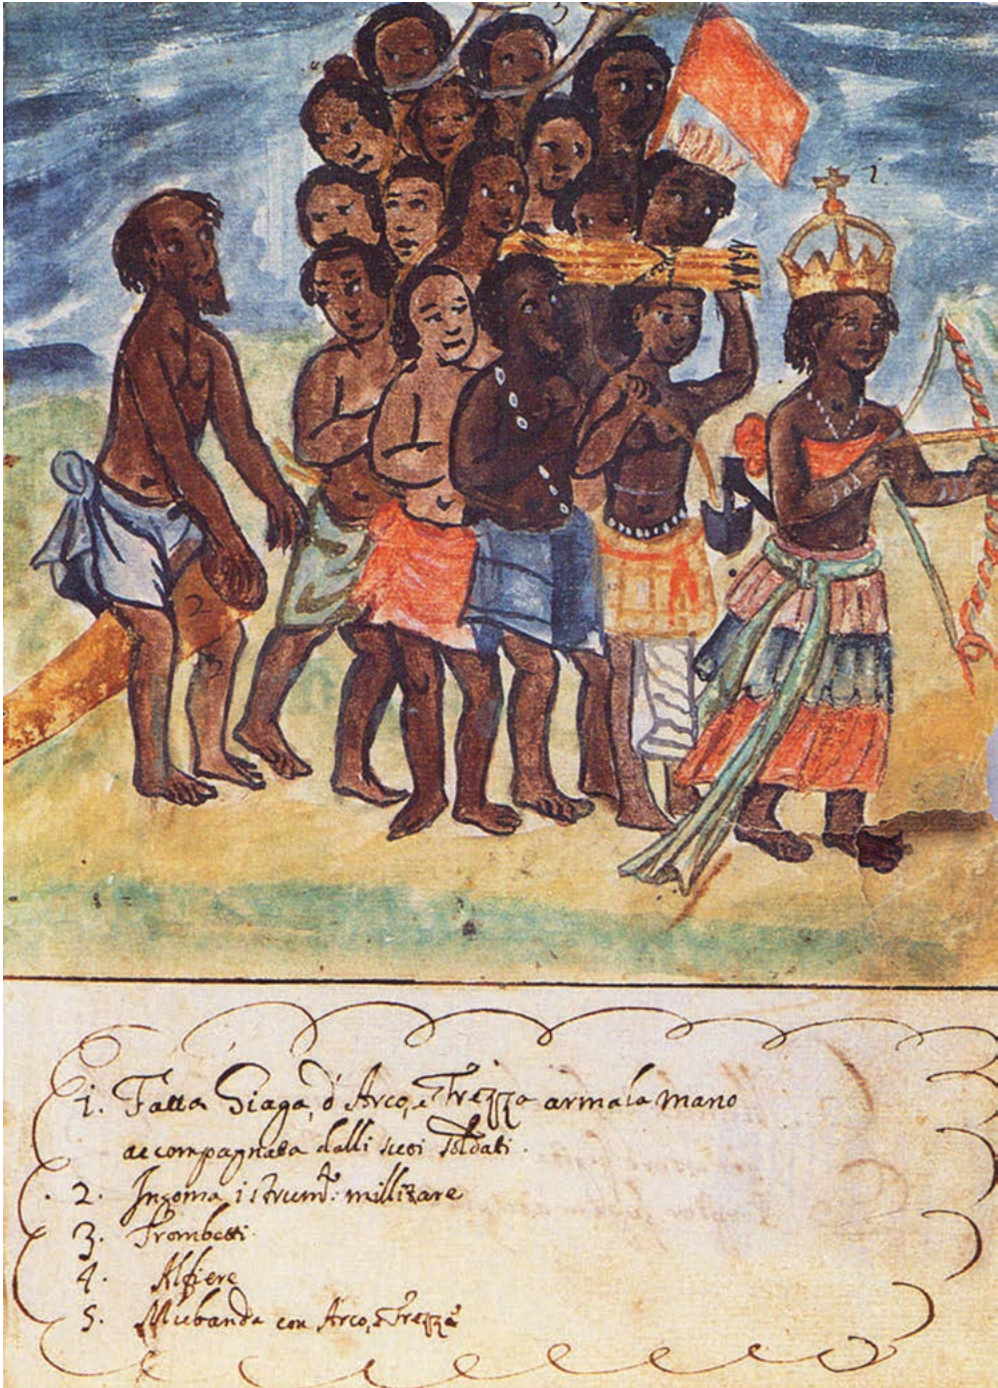 1.
3
2
3
1. Fatta Giaga, d' Arco, e Frezza armata mano
accompagnata dalli suoi Soldati.
2. Ingoma istrum.to millitare
3. Trombetti
4. Alfiere
5. con Arco, e Frezza